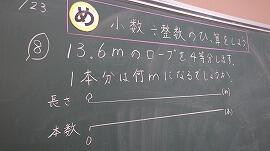 /23
め 小数÷整数のひっ算をしよう
⑧ 13.6mのロープを4等分します。
1本分は何mになるでしょうか。
長さ 0 (m)
本数 0 (本)